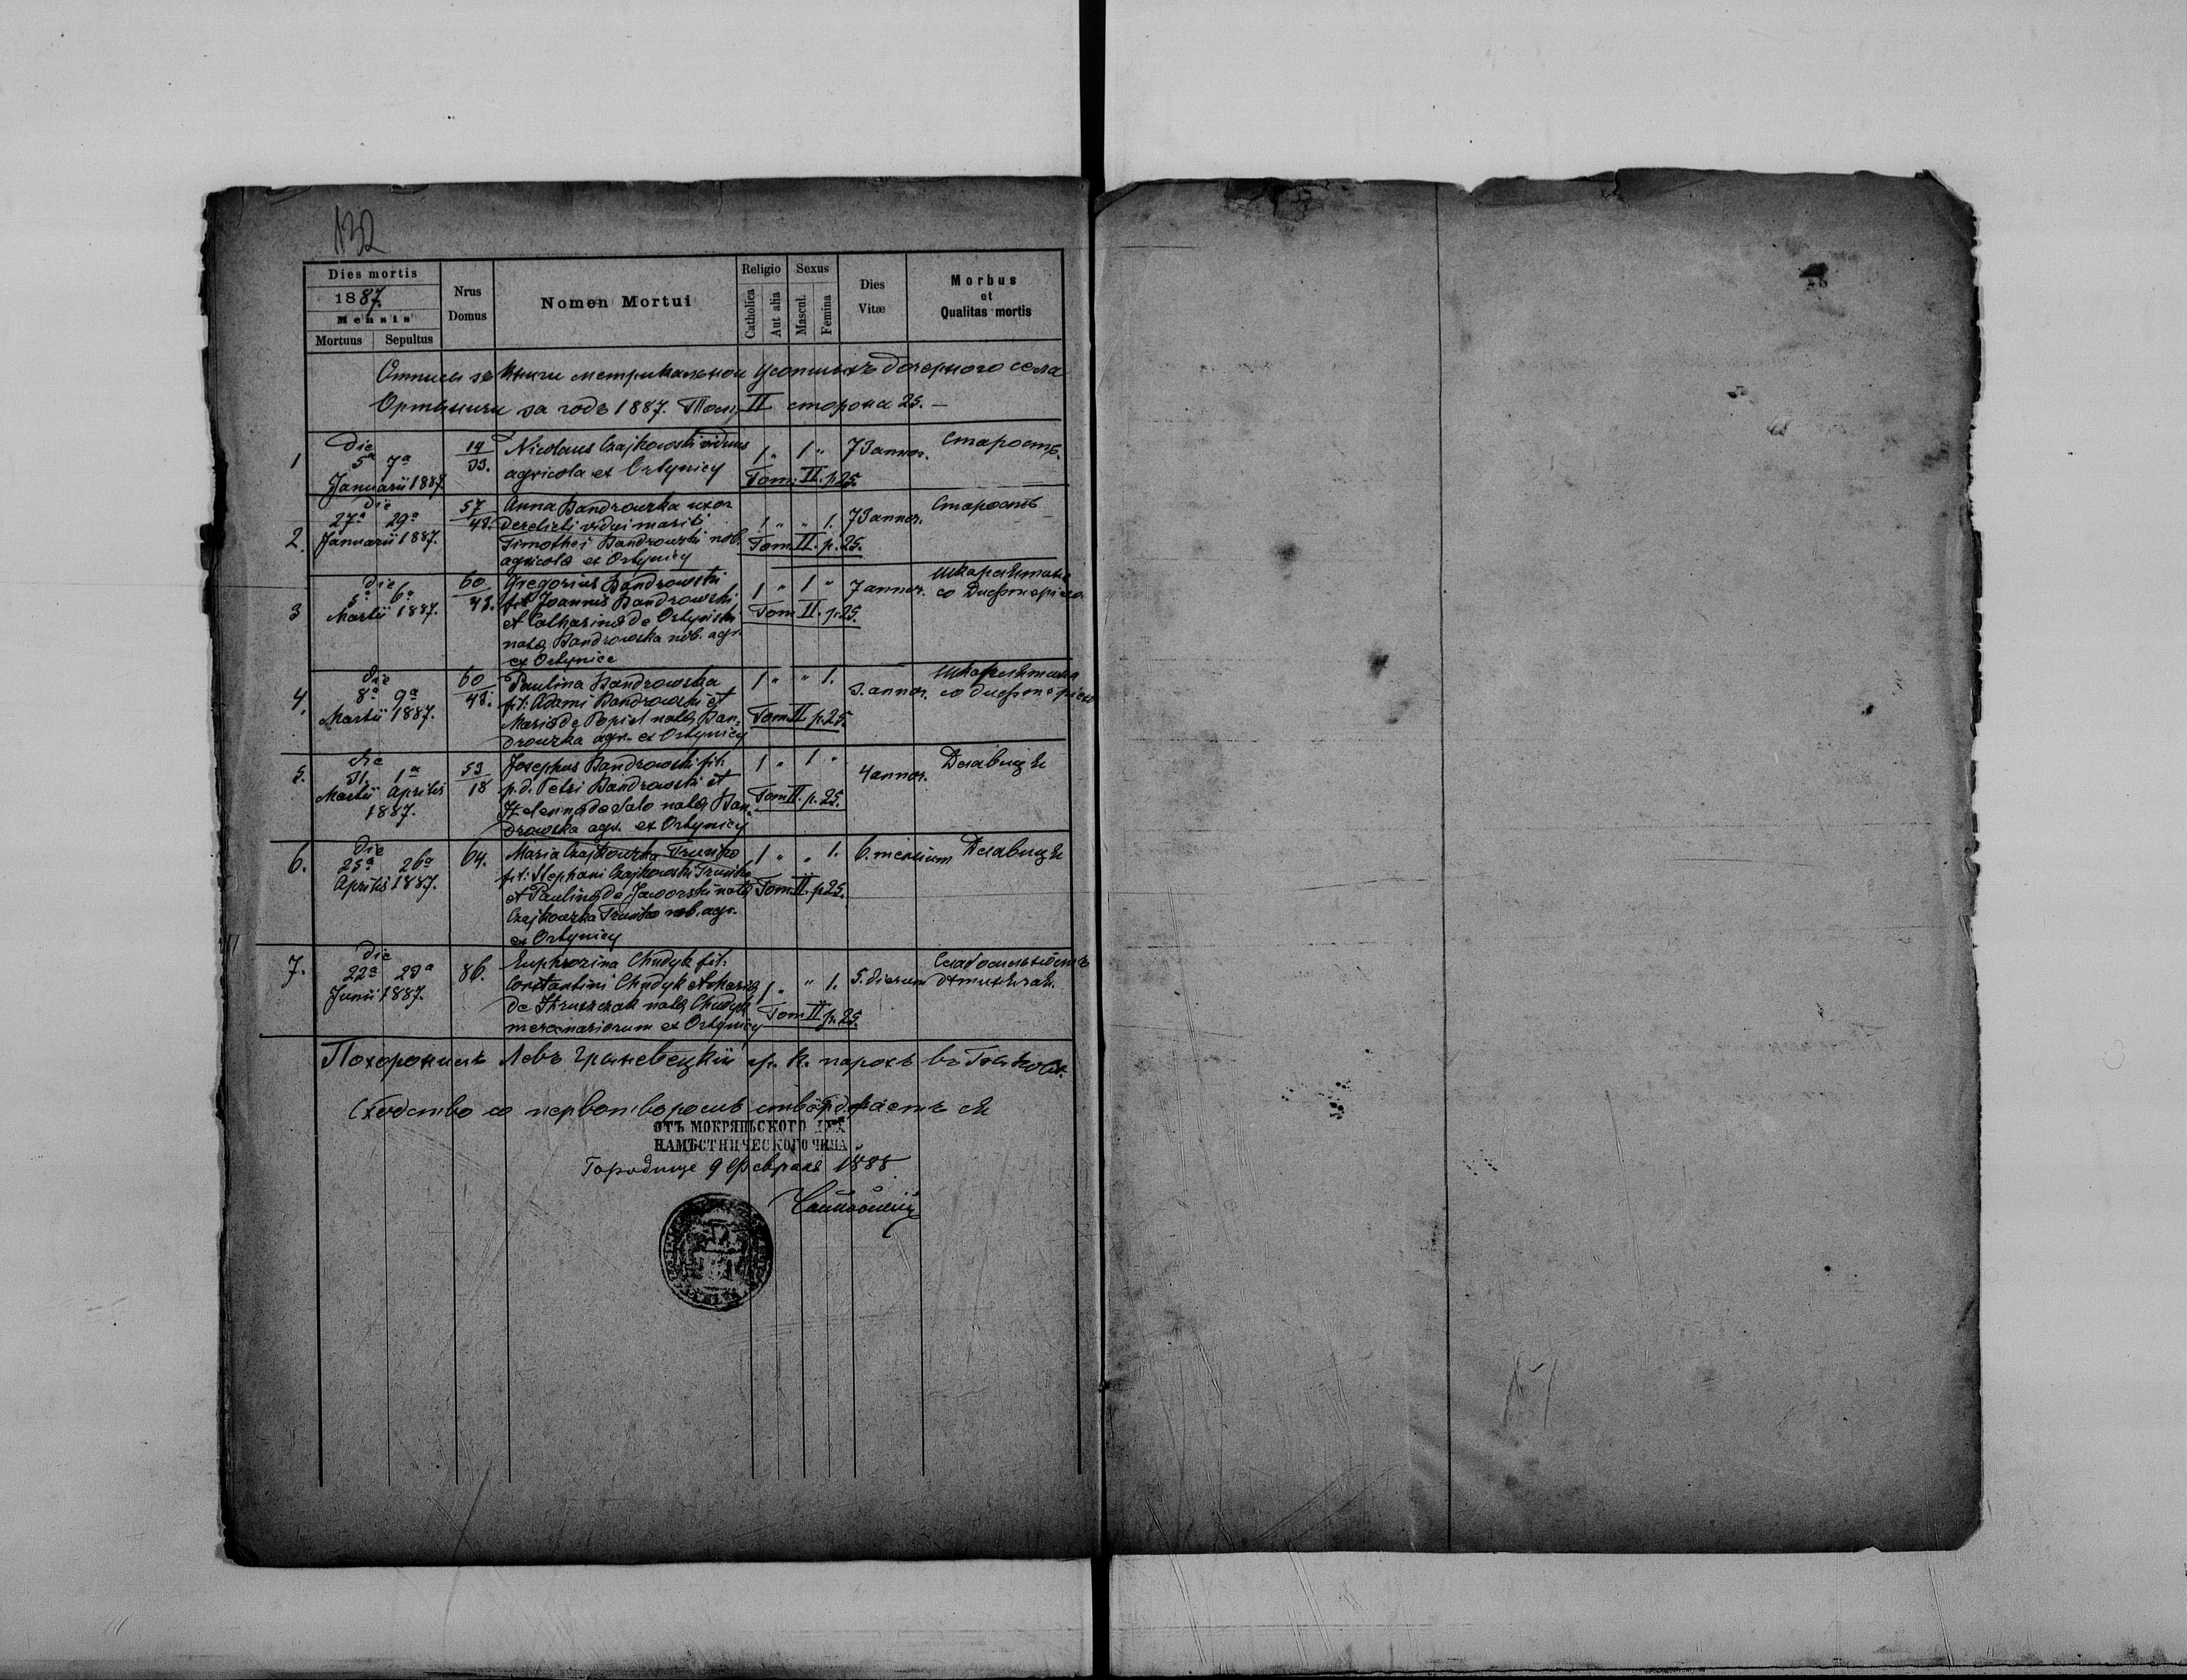 132
Dies mortis
1887.
Mensis
Mortuus Sepultus
Nrus
Domus
Nomen Mortui
Religio
Catholica
Aut alia
Sexus
Mascul.
Femina
Dies
Vitæ
Morbus
et
Qualitas mortis
Отписъ зъ книги метрикальнои усопшихъ дочерного села
Ортыничи за годъ 1887. Томъ II сторона 25. —
1 die
5ª 7ª
Januarii 1887.
14/33.
Nicolaus Czajkowski viduus
agricola ex Ortynicy
1 " 1 "
Tom. II. p. 25.
73 annor.
Старость.
2. die
27ª 29ª
Januarii 1887.
57/48.
Anna Bandrowska uxor
derelicti vidui mariti
Timothei Bandrowski nob.
agricola ex Ortynicy
1 " " 1.
Tom. II. p. 25.
73 annor.
Старость
3 die
5ª 6ª
Martii 1887.
60/48.
Gregorius Bandrowski
fil: Joannis Bandrowski
et Catharina de Ortyński
nata Bandrowska nob. agr.
ex Ortynice
1 " 1 "
Tom II. p. 25.
7 annor.
Шкарлятина
со Дифтеріею.
4. die
8ª 9ª
Martii 1887.
60/48.
Paulina Bandrowska
fil: Adami Bandrowski et
Maria de Popiel nata Ban=
drowska agr. ex Ortynicy
1 " " 1.
Tom II p. 25.
3. annor.
Шкарлятина
со дифтеріею
5. die
31. 1ª
Martii Aprilis
1887.
53/18
Josephus Bandrowski fil:
p.d. Petri Bandrowski et
Helenna de Salo nata Ban=
drowska agr. ex Ortynicy
1 " 1 "
Tom II. p. 25.
4 annor.
Давиця
6. die
25ª 26ª
Aprilis 1887.
64.
Maria Czajkowska
fil: Stephani Czajkowski
et Paulina de Jaworski nata
Czajkowska nob. agr.
ex Ortynicy
1 " " 1.
Tom II. p. 25.
6. mensium
Давиця
7. die
22ª 23ª
Junii 1887.
86.
Euphrozina Chudyk fil:
Constantini Chudyk et Maria
de nata Chudyk
mercenariorum ex Ortynicy
1 " " 1.
Tom II p. 25.
5. dierum
Слабосильность
дитиняча.
Похоронилъ Левъ гр. к. парохъ въ
Сходство со первотворомъ стверджаетъ ся
ОТЪ МОКРЯНЬСКОГО
НАМѢСТНИЧЕСКОГО ЧИНА
Городище 9 Февраля 1888